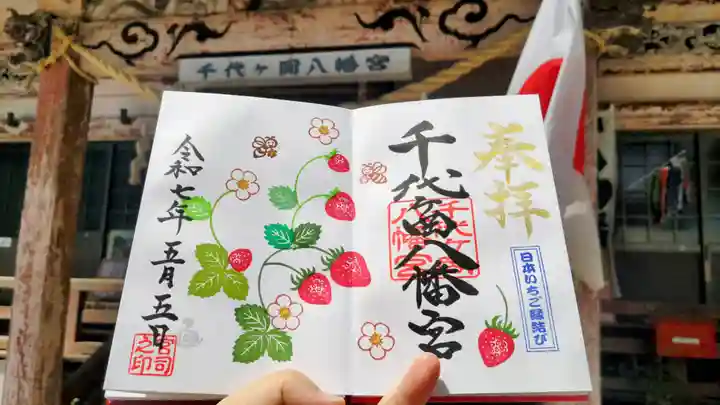 千代ヶ岡八幡宮
奉拝
千代ヶ岡八幡宮
千代ヶ岡八幡宮
日本いちご縁結び
令和七年 五月五日
宮司之印